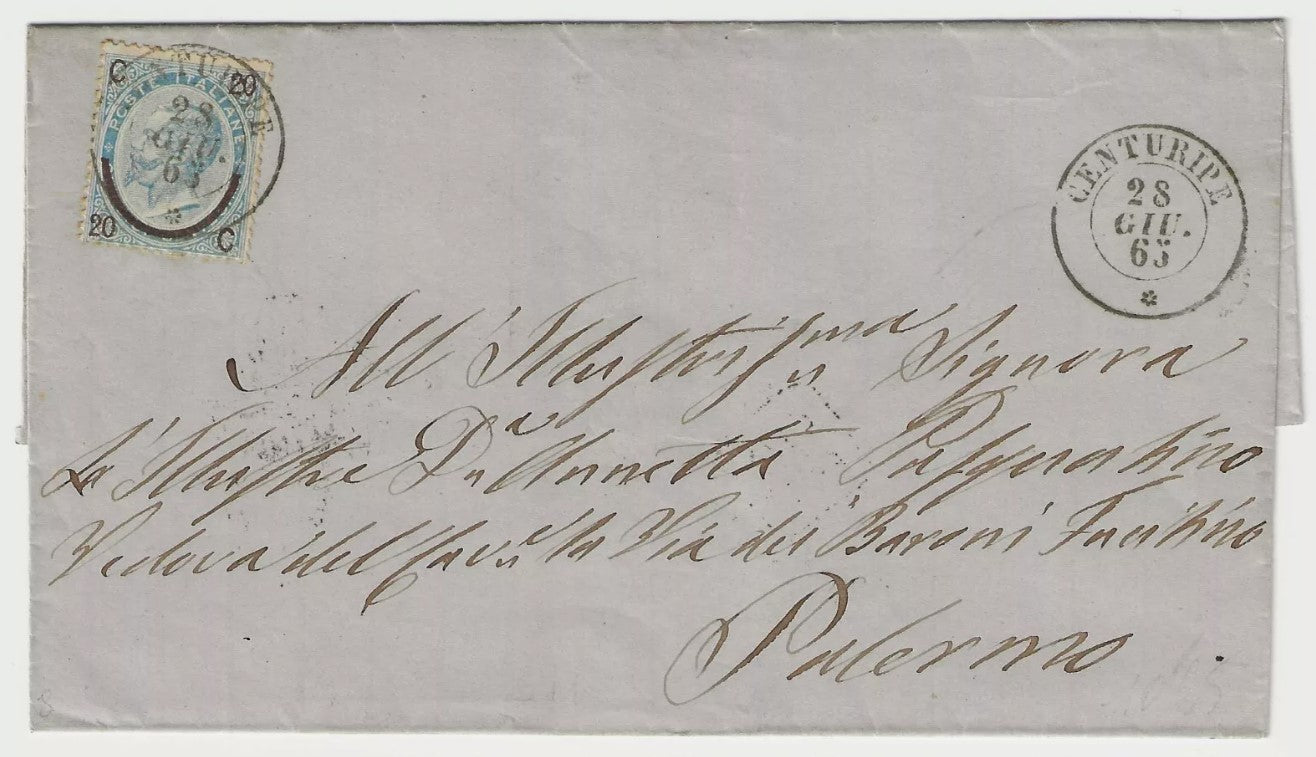 C 20
POSTE ITALIANE
20 C
TURIPE
28
GIU.
65
*
CENTURIPE
28
GIU.
65
*
All' Illustrissma Signora
La Illustre Dna Annetta
Vedova del Cavre La Via dei Baroni
Palermo